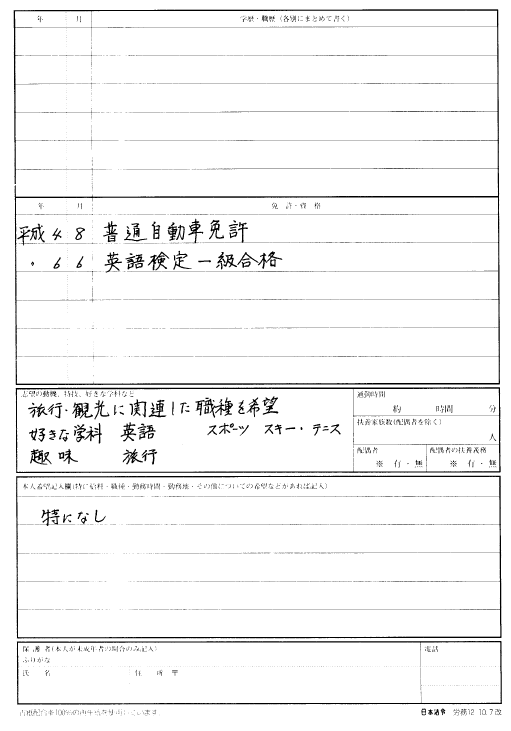 年 月 学歴・職歴（各別にまとめて書く）
年 月 免許・資格
平成 4 8 普通自動車免許
〃 6 6 英語検定一級合格
志望の動機、特技、好きな学科など
旅行・観光に関連した職種を希望
好きな学科 英語 スポーツ スキー・テニス
趣味 旅行
通勤時間
約 時間 分
扶養家族数(配偶者を除く)
人
配偶者
※ 有・無
配偶者の扶養義務
※ 有・無
本人希望記入欄(特に給料・職種・勤務時間・勤務地・その他についての希望などがあれば記入)
特になし
保護者(本人が未成年者の場合のみ記入)
ふりがな
氏 名 住 所 〒
電話
古紙配合率100%の再生紙を使用しています
日本法令 労務12 10.7改